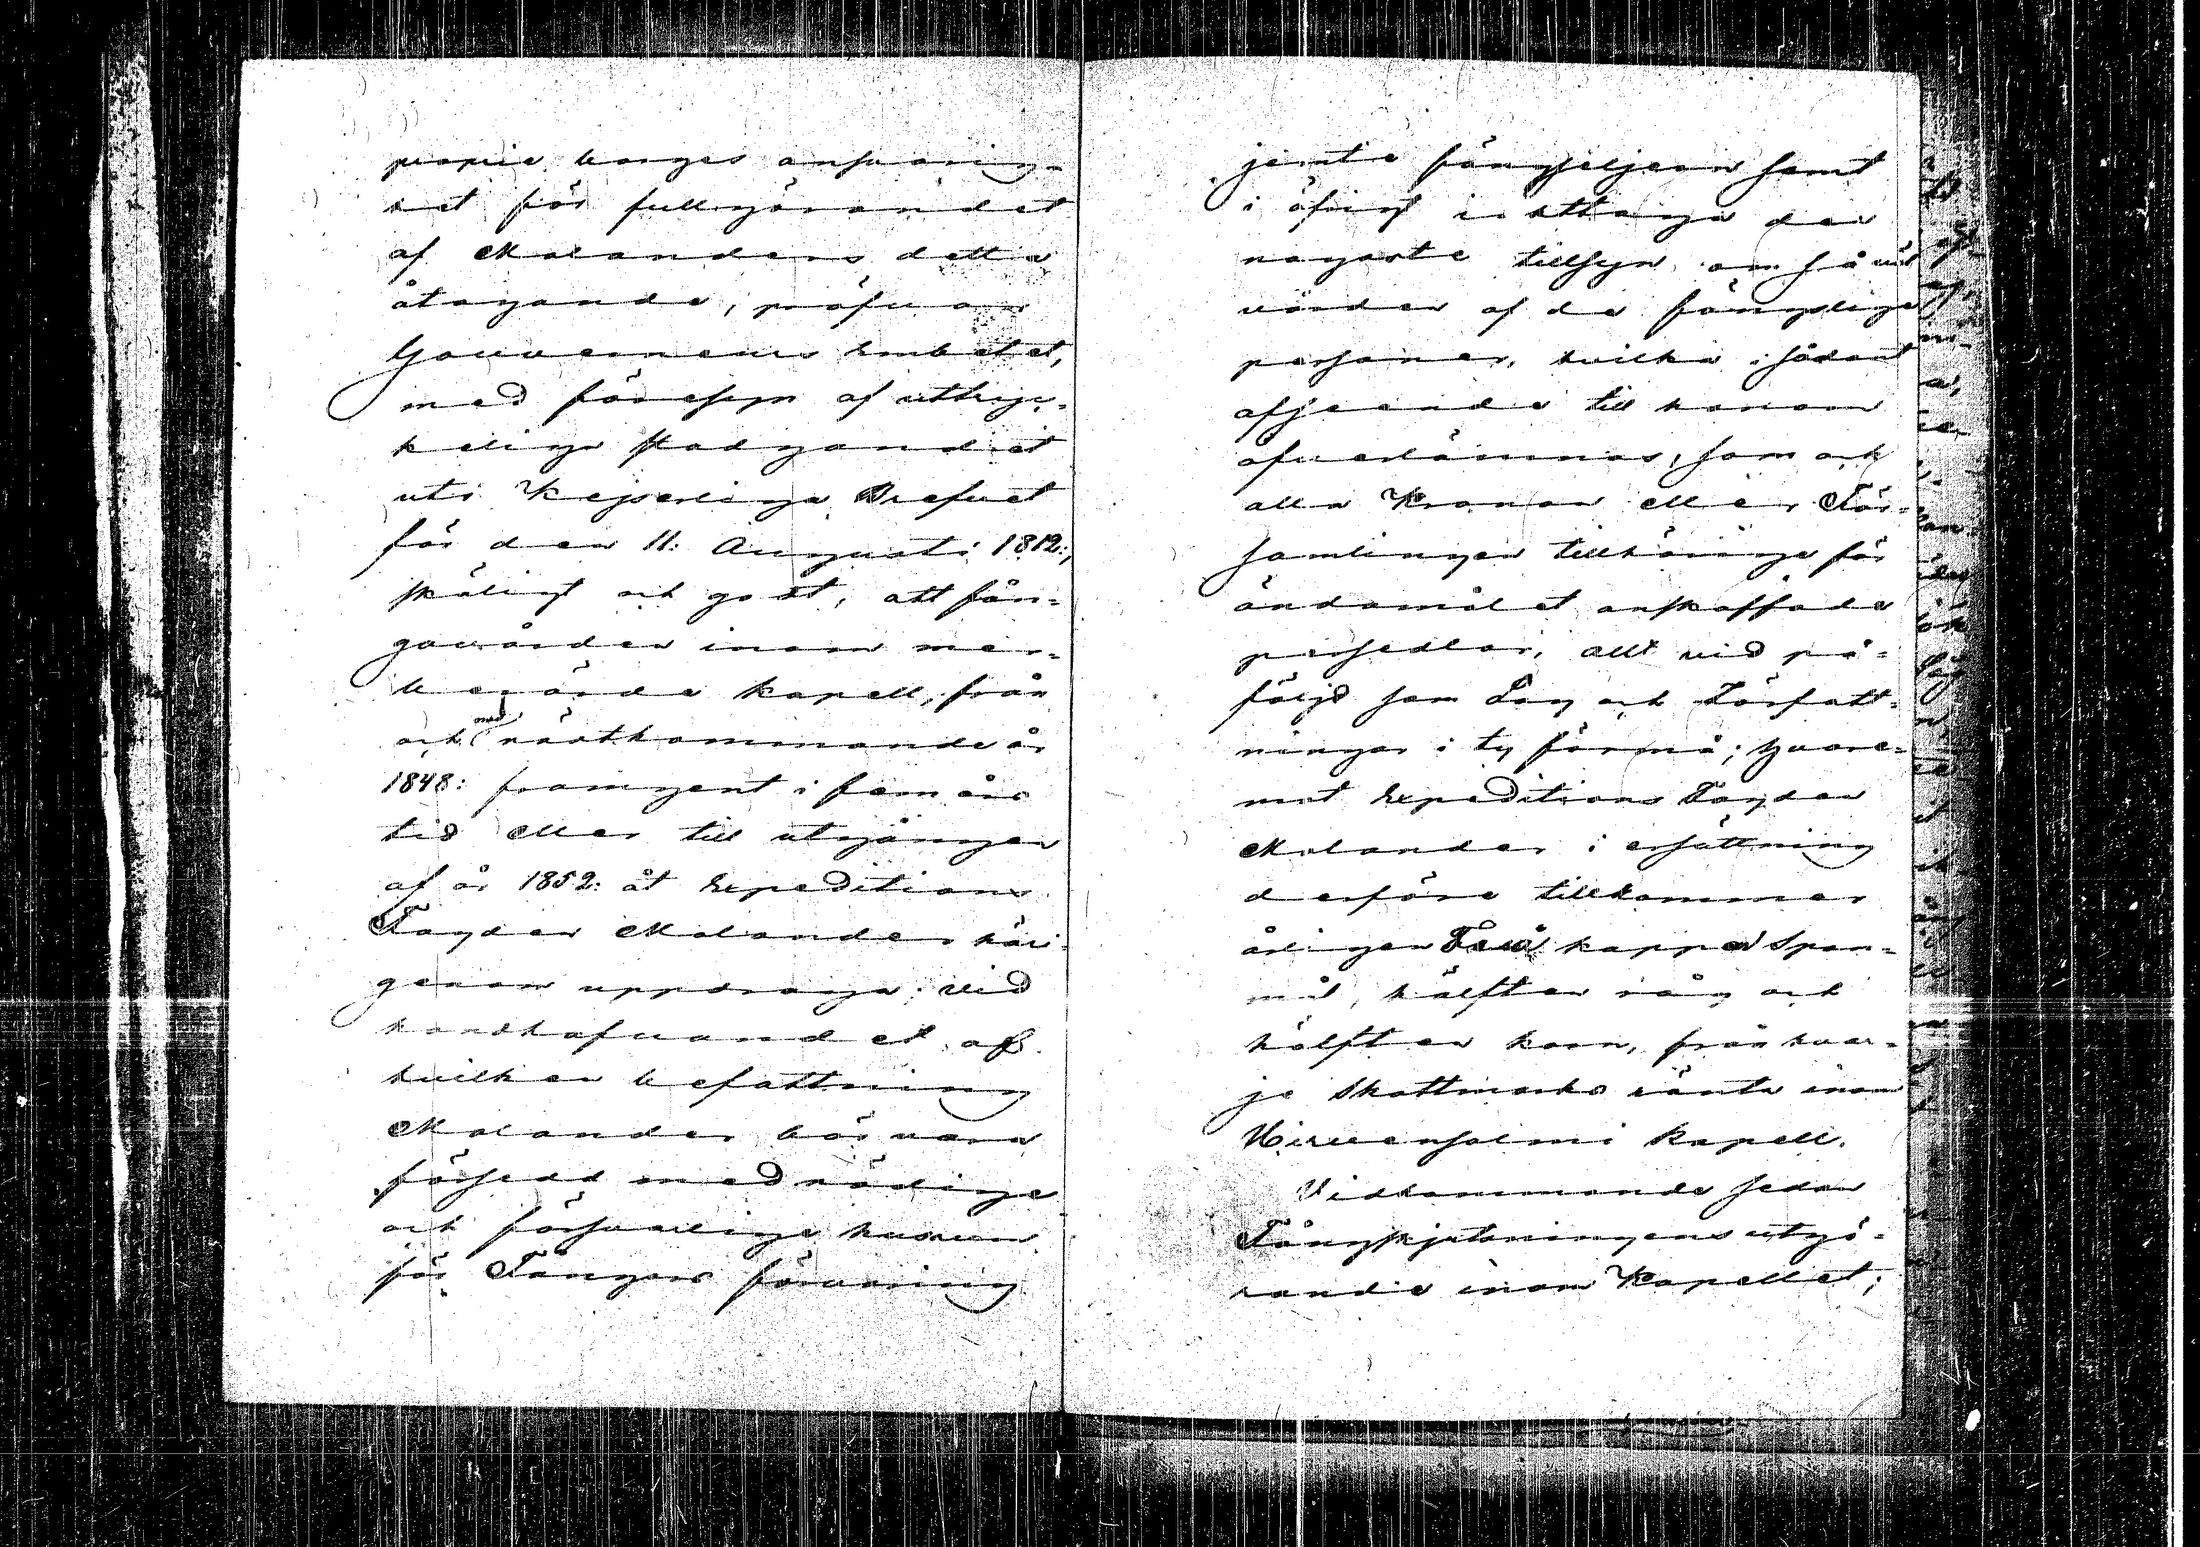 proprie borges ansvarig-
het för fullgörandet
af Molanders detta
åtagande, pröfvar
Gouverneurs Embetet,
med föresyn af uttryc-
keliga stadgandet
uti Kejserliga Brefvet
för den 11: Augusti 1812:,
skäligt och godt, att fån-
gavården inom mer-
berörde kapell, från
och med nästkommande år
1848: framgent i fem års
tid eller till utgången
af år 1852: åt Expeditions
Fogden Molander häri-
genom uppdraga; vid
handhafvandet af
hvilken befattning
Molander bör vara
försedd med nödige
och försvarlige husrum
för Fångars förvaring
jemte fängseljern samt
i öfrigt iakttaga den
nogaste tillsyn om så väl
vården af de fängslige
personer, hvilka i sådant
afseende till honom
öfverlämnas, som ock
alla Kronan eller För-
samlingen tillhörige för
ändamålet anskaffade
persedlar, allt vid på-
följd som Lag och Författ-
ningar i ty förmå; hvare-
mot Expeditions Fogden
Molander i ersättning
derföre tillkommer
årligen Två kappar Span-
mål, hälften råg och
hälften korn, från hvar-
je Skattmarks ränta inom
Hirvensalmi Kapell.
Vidkommande sedan
Fångskjutsningens utgö-
rande inom Kapellet;